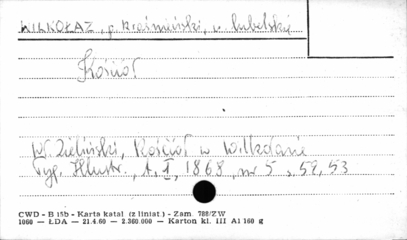 WILKOŁAZ, p. Kraśnicki, w. lubelsky
Kościół
Wł. Zieliński, Kościół w Wilkołazie
Tyg. Illustr., t. I, 1868, nr 5, 52, 53
CWD - B 15b - Karta katal (z liniat.) - Zam. 788/ZW
1060 — ŁDA — 21.4.60 — 2.360.000 — Karton kl. III A1 160 g